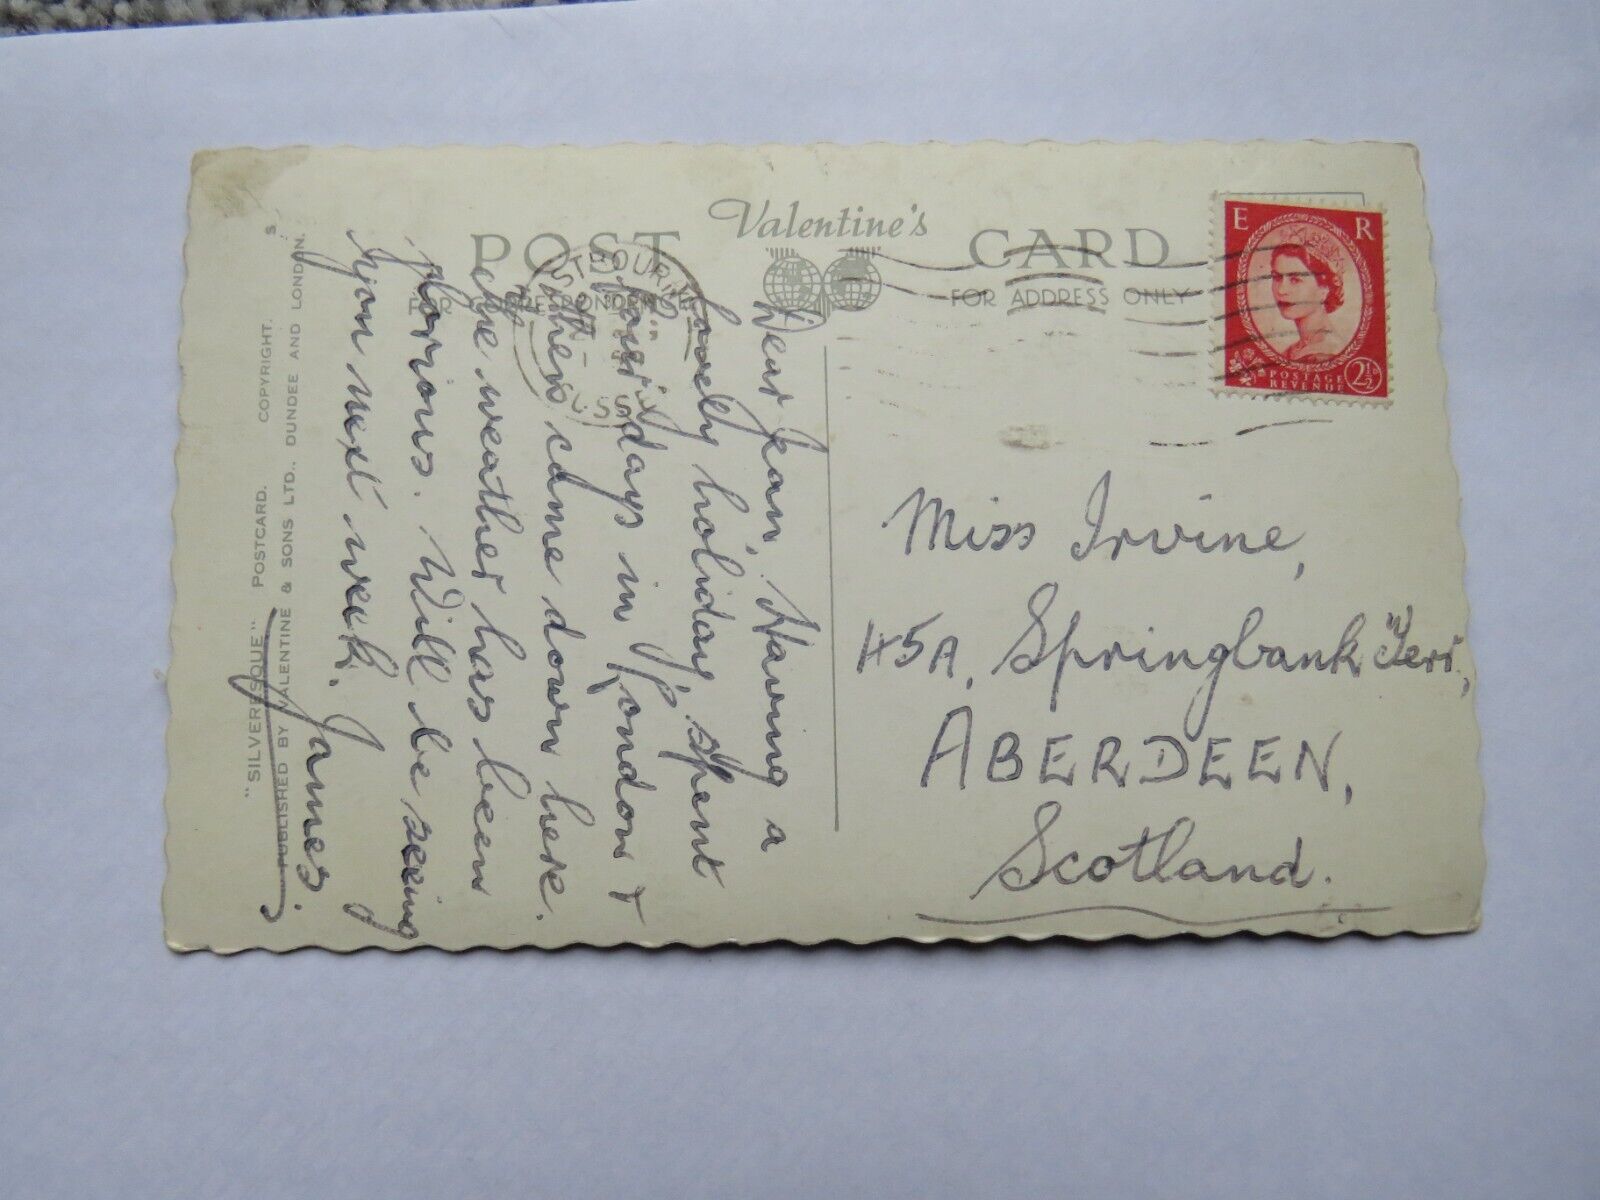 POST Valentine's CARD
FOR CORRESPONDENCE FOR ADDRESS ONLY
E R
POSTAGE
REVENUE 2½D
EASTBOURNE
SUSSEX
Dear Jean, Having a
lovely holiday, spent
four days in London &
then came down here.
The weather has been
glorious. Will be seeing
you next week. James.
Miss Irvine,
45A, Springbank Terr,
ABERDEEN,
Scotland.
"SILVERESQUE" POSTCARD. COPYRIGHT.
PUBLISHED BY VALENTINE & SONS LTD., DUNDEE AND LONDON. S.